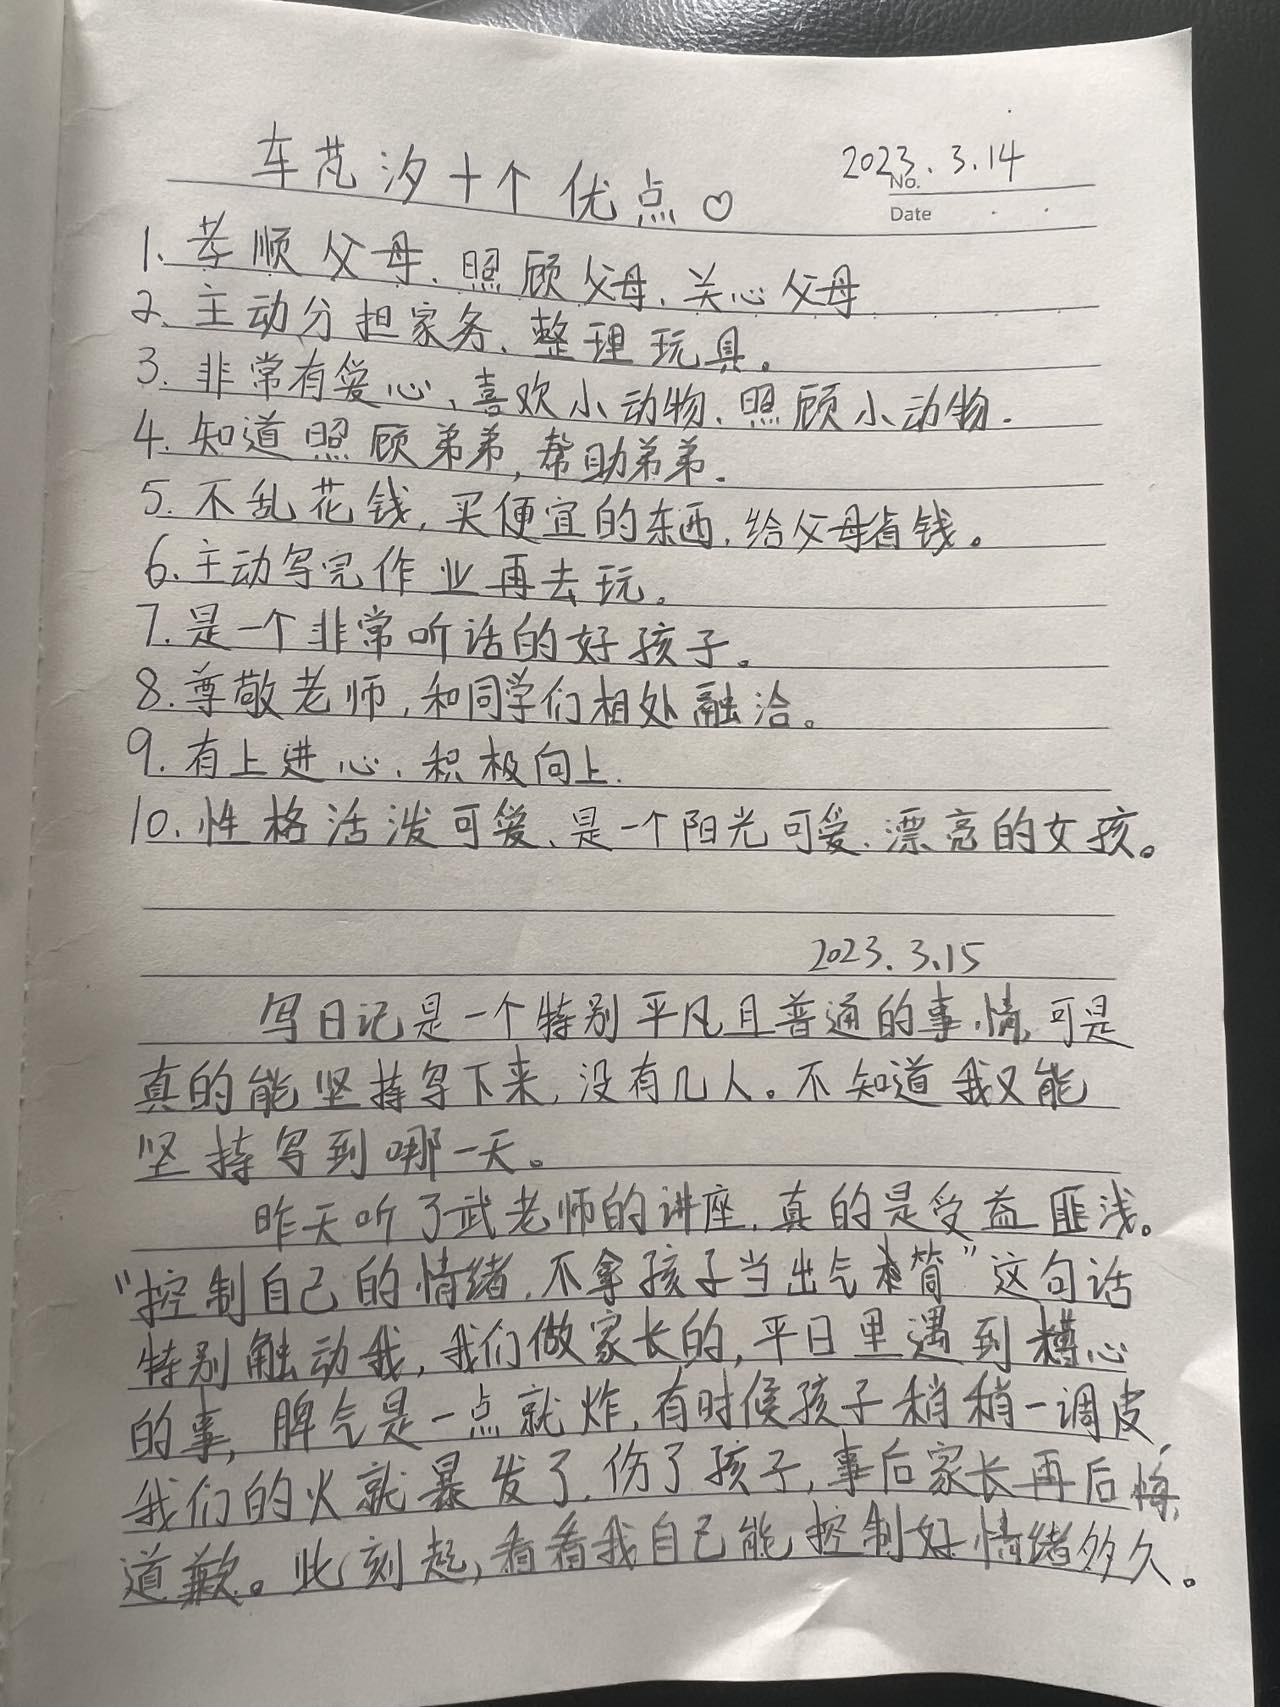 车芃汐十个优点♡ 2023.3.14
No.
Date
1.孝顺父母、照顾父母、关心父母
2、主动分担家务、整理玩具。
3.非常有爱心、喜欢小动物、照顾小动物.
4.知道照顾弟弟,帮助弟弟.
5.不乱花钱,买便宜的东西,给父母省钱。
6.主动写完作业再去玩。
7.是一个非常听话的好孩子。
8.尊敬老师,和同学们相处融洽。
9.有上进心、积极向上.
10.性格活泼可爱、是一个阳光可爱、漂亮的女孩。
2023.3.15
写日记是一个特别平凡且普通的事情,可是
真的能坚持写下来,没有几人。不知道我又能
坚持写到哪一天。
昨天听了武老师的讲座,真的是受益匪浅。
“控制自己的情绪,不拿孩子当出气筒”这句话
特别触动我,我们做家长的,平日里遇到糟心
的事,脾气是一点就炸,有时候孩子稍稍一调皮,
我们的火就暴发了,伤了孩子,事后家长再后悔,
道歉。此刻起,看看我自己能控制好情绪多久。